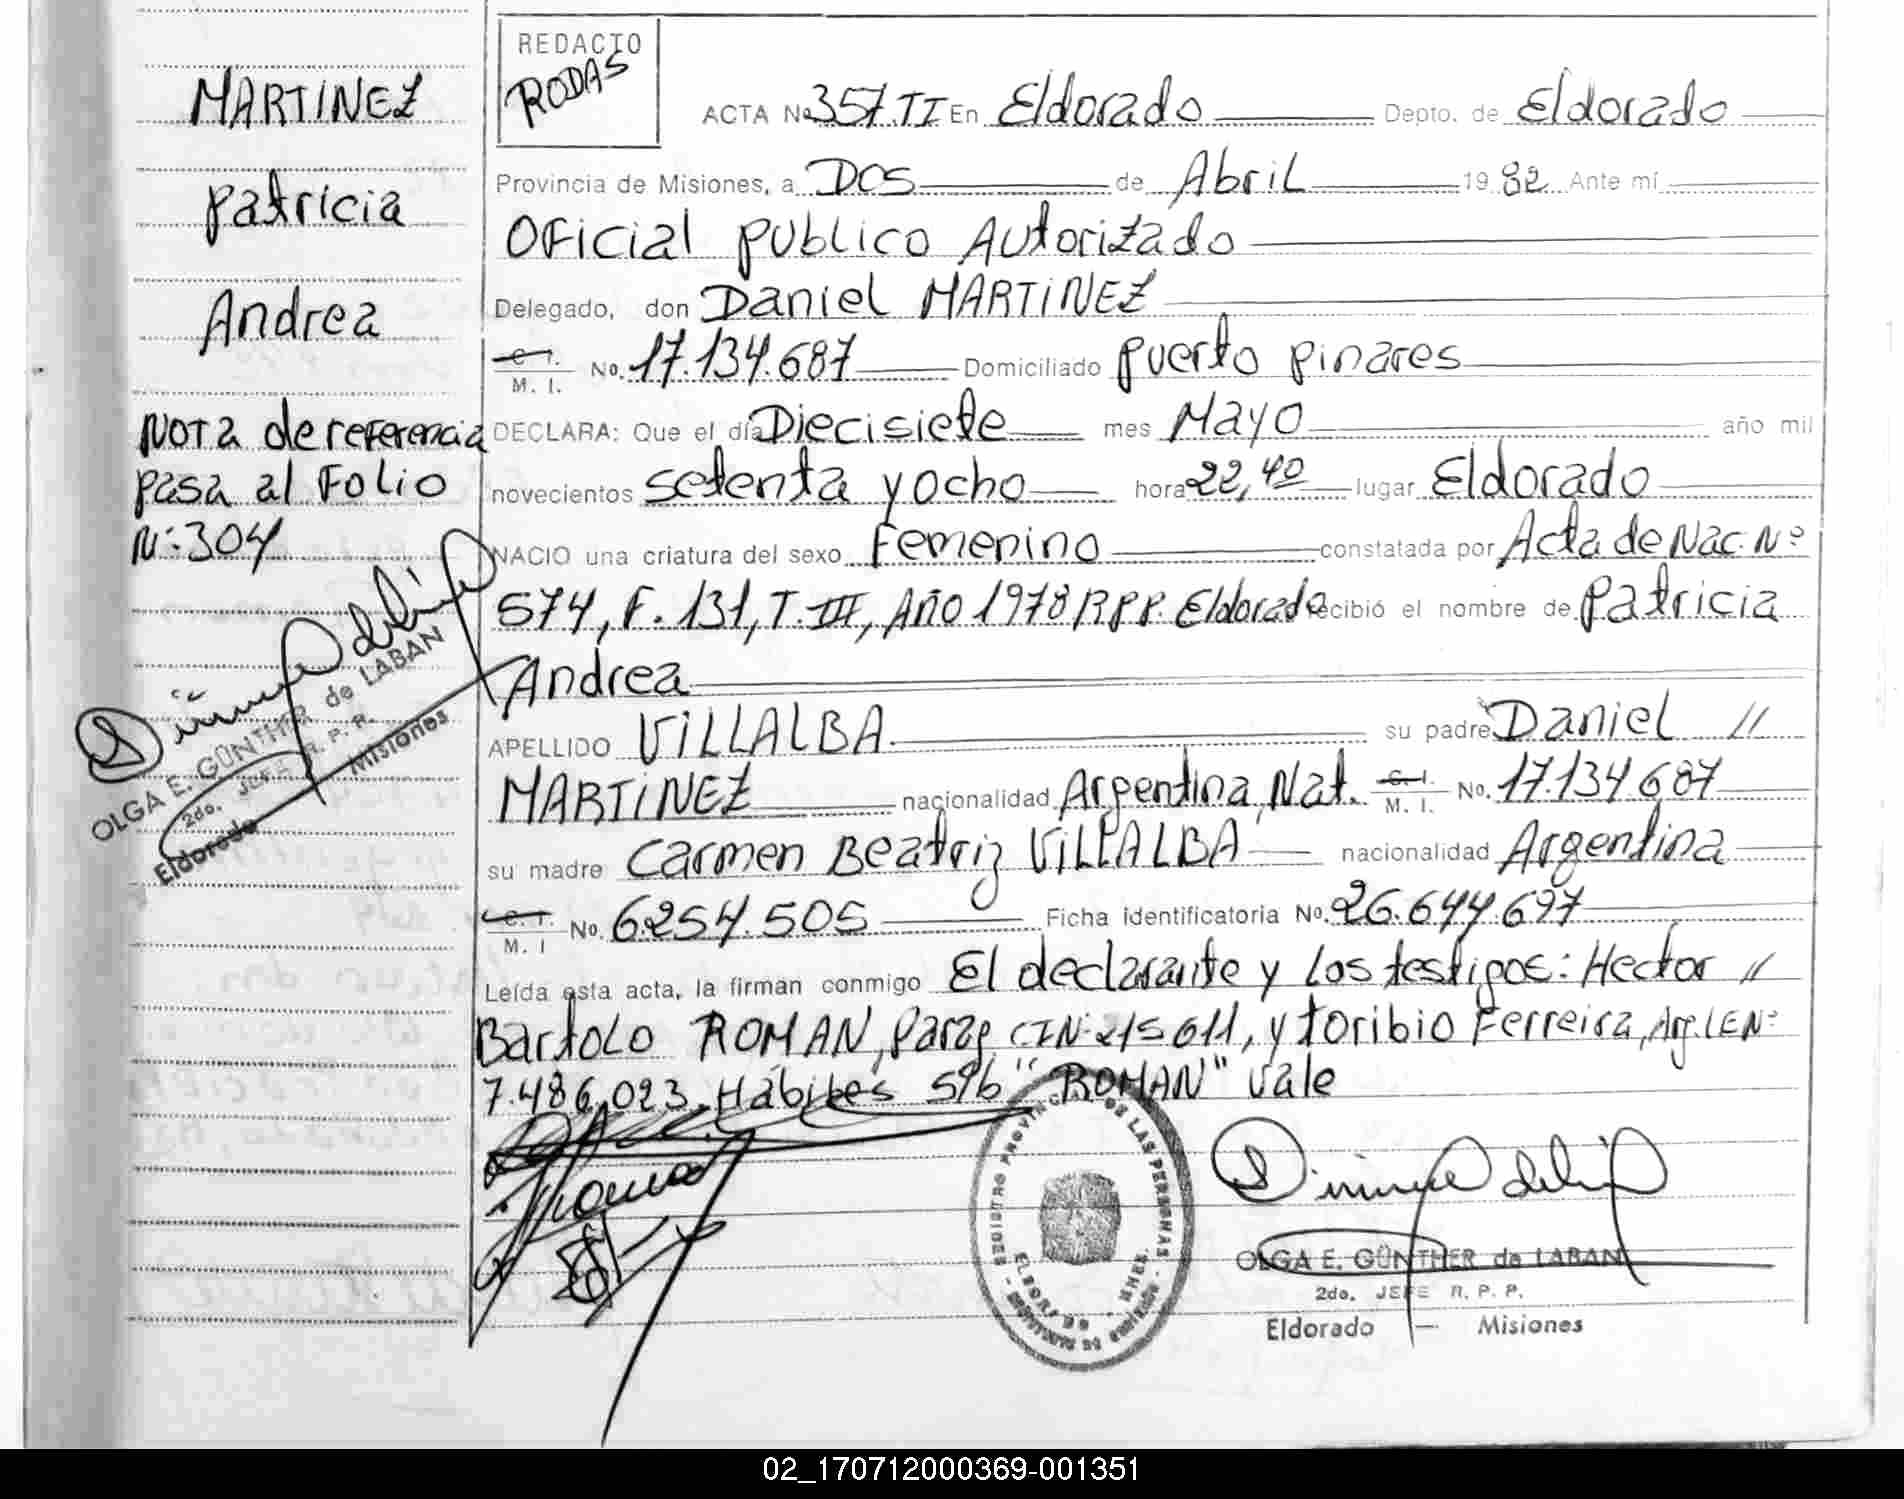 MARTINEZ
Patricia
Andrea
NOTA de referencia
pasa al Folio
N: 304
OLGA E. GÜNTHER de LABAN
2do. JEFA R. P. P.
Eldorado Misiones
REDACTO
RODAS
ACTA No 357 TI En Eldorado Depto. de Eldorado
Provincia de Misiones, a Dos de Abril 1982 Ante mí
Oficial publico Autorizado
Delegado, don Daniel MARTINEZ
C. I. M. I. No. 17.134.687 Domiciliado puerto pinares
DECLARA: Que el día Diecisiete mes Mayo año mil
novecientos setenta y ocho hora 22,40 lugar Eldorado
NACIO una criatura del sexo Femenino constatada por Acta de Nac. Nº
574, F. 131, T. III, Año 1978 RPP. Eldorado recibió el nombre de Patricia
Andrea
APELLIDO VILLALBA su padre Daniel //
MARTINEZ nacionalidad Argentina, Nat. C. I. M. I. No. 17.134.687
su madre Carmen Beatriz VILLALBA nacionalidad Argentina
C. I. M. I No. 6254.505 Ficha identificatoria No. 26.644.697
Leída esta acta, la firman conmigo El declarante y los testigos: Hector //
Bartolo ROMAN, Parag. CIN: 215 611, y toribio Ferreira, Arg. LEN:
7.486.023. Hábiles S/b "ROMAN" vale
REGISTRO PROVINCIAL DE LAS PERSONAS
OLGA E. GÜNTHER de LABAN
2do. JEFE R. P. P.
Eldorado — Misiones
02_170712000369-001351